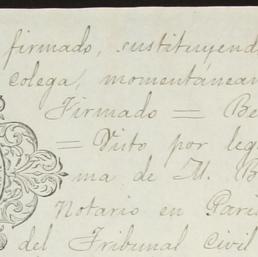 firmado, sustituyend
colega, momentánean
Firmado = Be
= Visto por leg
ma de M. B
Notario en Parí
del Tribunal Civil